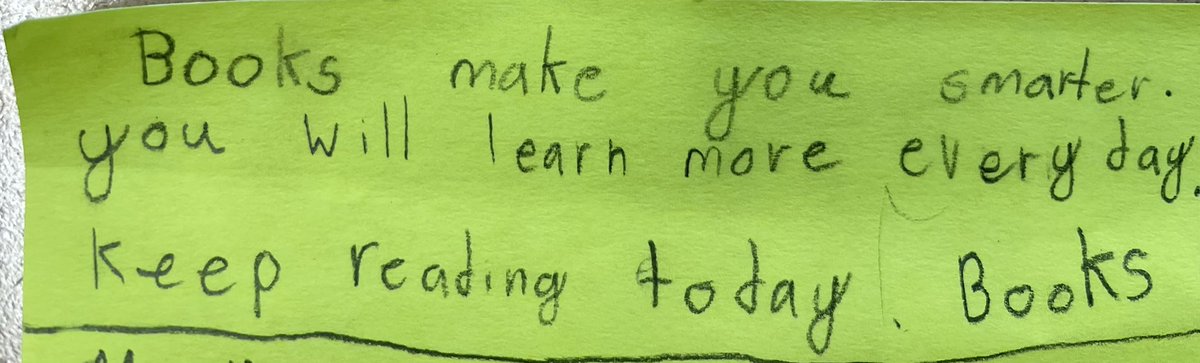 Books make you smarter.
you will learn more every day.
Keep reading today. Books